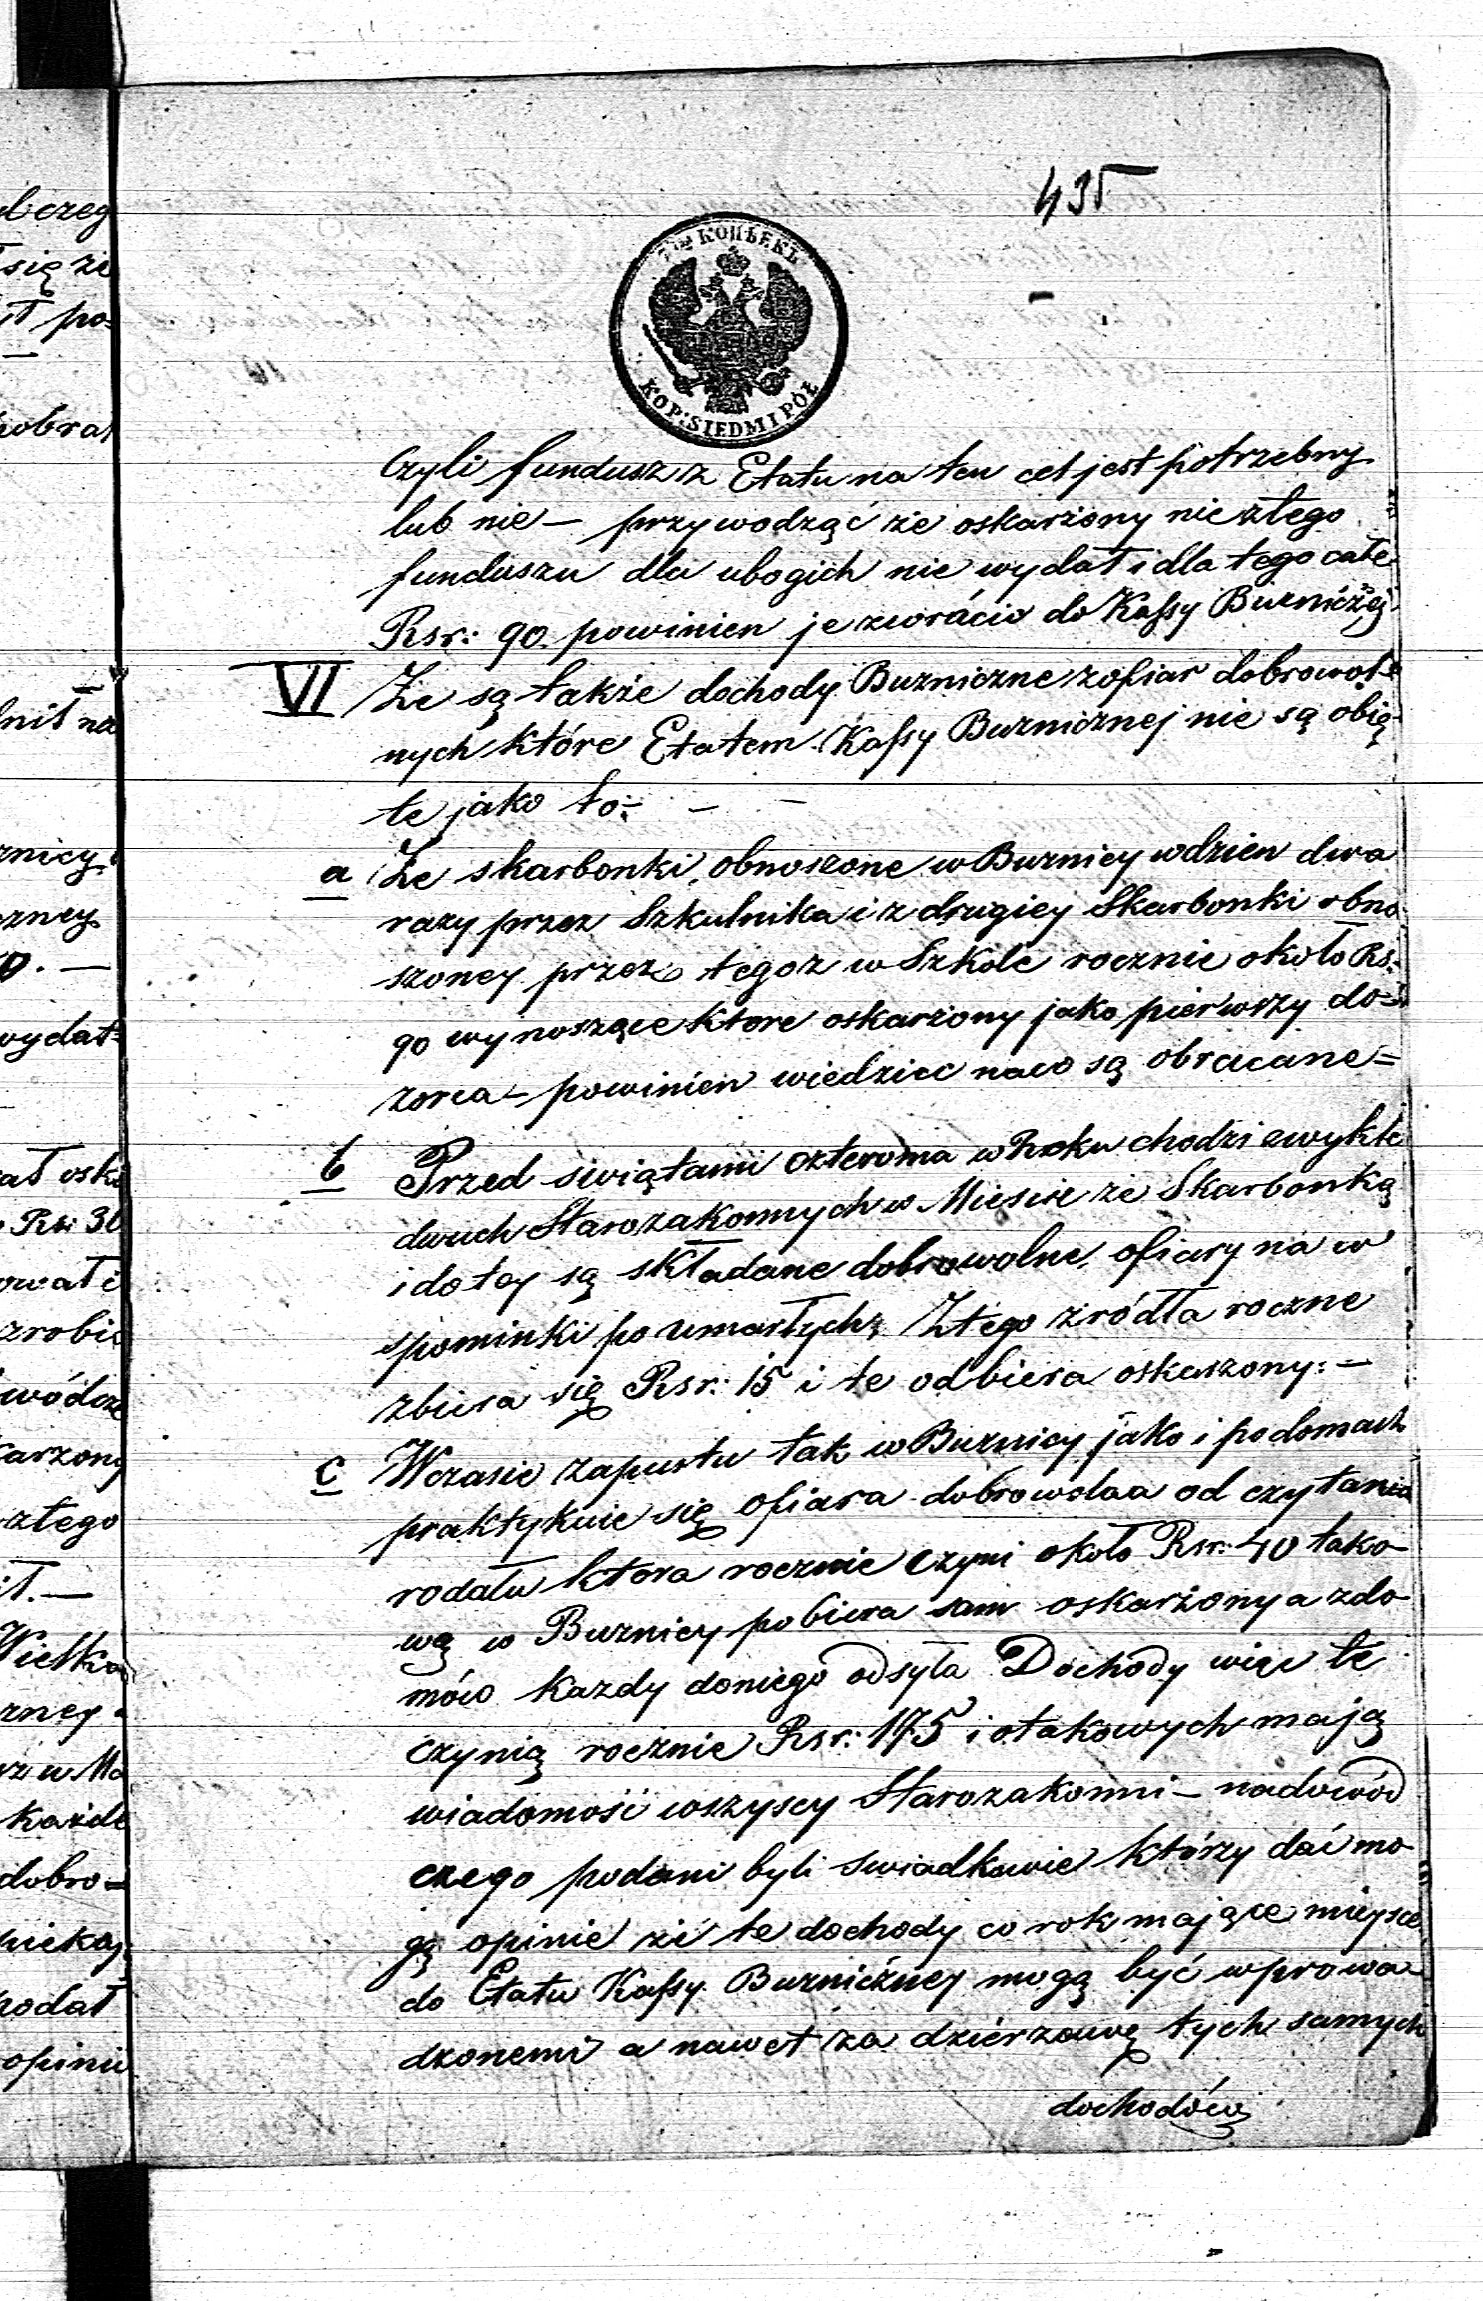 435
7½ КОПѢЕКЪ
KOP: SIEDM I PÓŁ
Czyli fundusz z Etatu na ten cel jest potrzebny
lub nie — przywodząć że oskarżony nic ztego
funduszu dla ubogich nie wydał i dla tego całe
Rsr: 90. powinien je zwrócić do Kassy Buzniczej
VI Ze są także dochody Buzniczne z ofiar dobrowol=
nych które Etatem Kassy Buznicznej nie są obię-
te jako to: — —
a Ze skarbonki, obnoszone w Buznicy w dzien dwa
razy przez Szkulnika i z drugiey Skarbonki obno
szoney przez tegoz w Szkole rocznie około Rs:
90 wynoszące ktore oskarzony jako pierwszy do=
zorca — powinien wiedziec naco są obracane =
b Przed swiątami czteroma w Roku chodzi zwykle
dwuch Starozakonnych w Miescie ze Skarbonką
i do tey są składane dobrowolne, ofiary na w
spominki po umarłych, Ztego zródła roczne
zbiera się Rsr: 15 i te odbiera oskarzony: —
c Wczasie zapustu tak w Buznicy jako i po domach
praktykuie się ofiara dobrowolna od czytania
rodału ktora rocznie czyni około Rsr: 40 tako-
wą w Buznicy pobiera sam oskarżony a zdo-
mów kazdy doniego odsyła Dochody więc te
czynią rocznie Rsr: 175 i otakowych mają
wiadomość wszyscy Starozakonni — nadowód
czego podani byli swiadkowie którzy dać mo-
gą opinie że te dochody co rok mające mieysce
do Etatu Kassy Buzniczney mogą być wprowa-
dzonemi a nawet za dzierzawę tych samych
dochodów